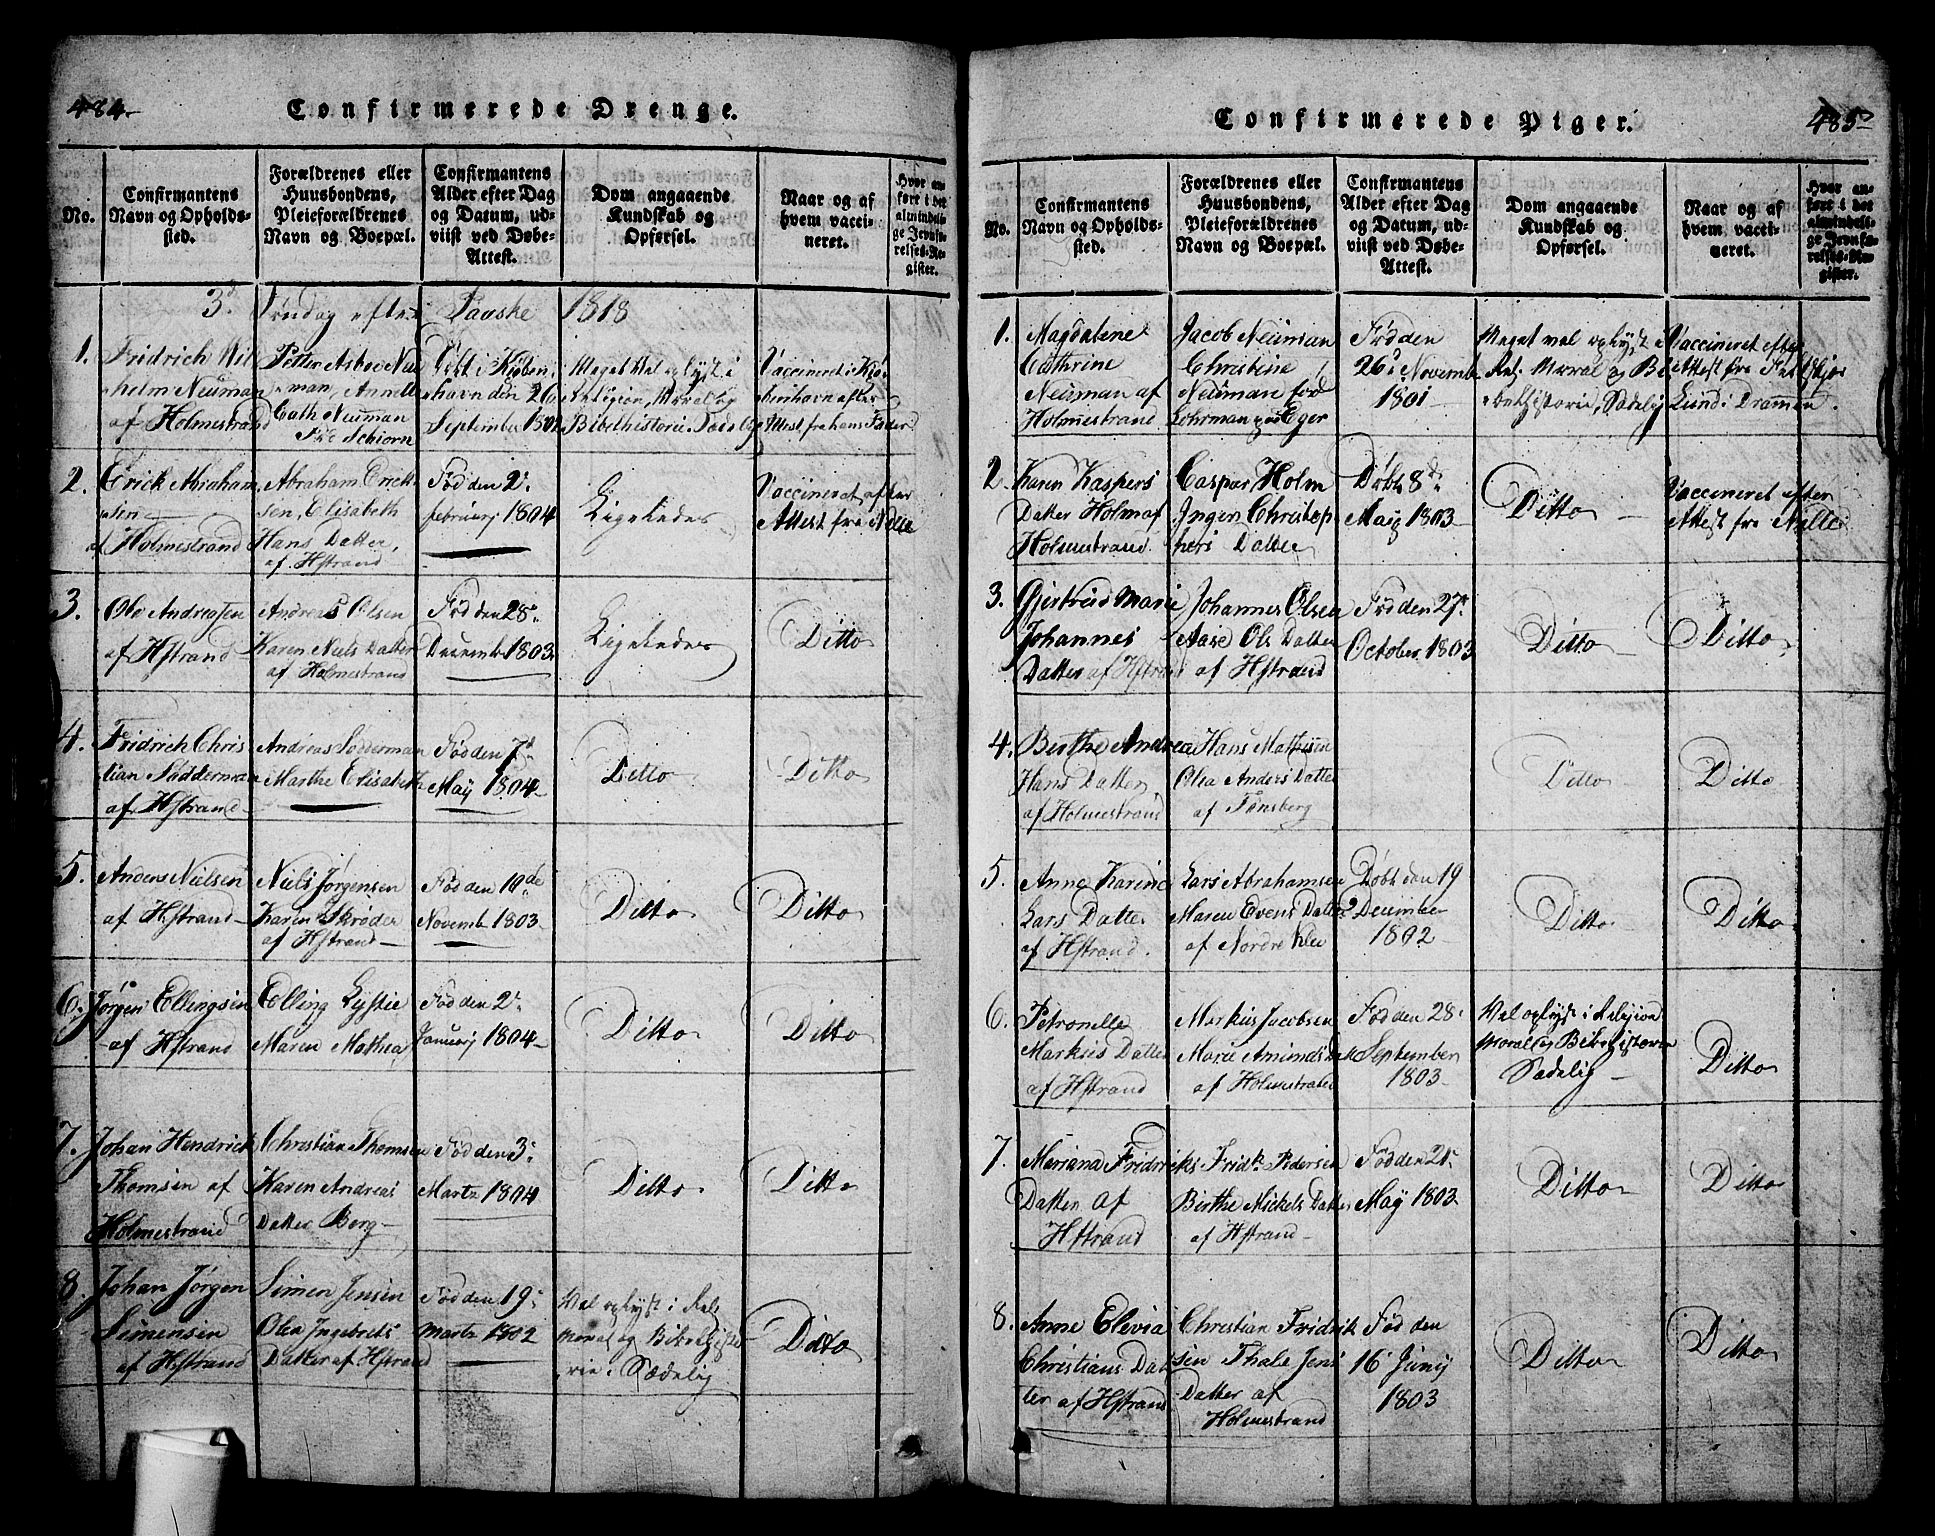 484
Confirmerede Drenge.
No.
Confirmantens
Navn og Opholds-
sted.
Forældrenes eller
Huusbondens,
Pleieforældrenes
Navn og Boepæl.
Confirmantens
Alder efter Dag
og Datum, ud-
viist ved Døbe-
Attest.
Dom angaaende
Kundskab og
Opførsel.
Naar og af
hvem vacci-
neret.
Hvor an-
ført i det
almindeli-
ge Jevnfø-
relses-Re-
gister.
3d Søndag efter Paaske 1818
1.
Fridrich Wil
helm Neuman
af Holmestrand
Petter Neu
man, Annette
Cath Neuman
Schiorn
Født i Kioben
havn den 26
September 1802
Meget vel oplyst i
Religion, Moral og
Bibelhistorie. Sædelig
Vaccineret i Kio
benhavn efter
Attest fra hans Fader
2.
Erick Abraham
sen
af Holmestrand
Abraham Erick
sen, Elisabeth
Hans Datter,
af Hstrand
Fød den 2d
februarj 1804
Ligeledes
Vaccineret efter
Attest fra
3.
Ole Andreasen
af Hstrand
Andreas Olsen
Karen Niels Datter
af Holmestrand
Fød den 28d
Decemb 1803
Ligeledes
Ditto
4.
Fridrich Chris
tian Sødderman
af Hstrand
Andreas Sodderman
Marthe Elisabeth
Fød den 7d
Maij 1804
Ditto
Ditto
5.
Anders Nielsen
af Hstrand
Niels Jørgensen
Karen Skrøder
af Hstrand
Fød den 10de
Novemb 1803
Ditto
Ditto
6.
Jørgen Ellingsen
af Hstrand
Elling
Maren Mathea
Fød den 2d
Januarj 1804
Ditto
Ditto
7.
Johan Hendrick
Thomsen af
Holmestrand
Christian Thomsen
Karen Andreas
Datter Berg
Fød den 3d
Martz 1804
Ditto
Ditto
8.
Johan Jørgen
Simensen
af Hstrand
Simen Jensen
Olea Ingebrets
Datter af Hstrand
Fød den 19d
Martz 1802
Vel oplyst i Rel:
Moral og Bibelhisto
rie. Sædelig
Ditto
485
Confirmerede Piger.
No.
Confirmantens
Navn og Opholds-
sted.
Forældrenes eller
Huusbondens,
Pleieforældrenes
Navn og Boepæl.
Confirmantens
Alder efter Dag
og Datum, ud-
viist ved Døbe-
Attest.
Dom angaaende
Kundskab og
Opførsel.
Naar og af
hvem vacci-
neret.
Hvor an-
ført i det
almindeli-
ge Jevnfø-
relses-Re-
gister.
1.
Magdalene
Cathrine
Neuman af
Holmestrand
Jacob Neuman
Christine
Neuman fød
Lohrman paa Eger
Fød den
26d Novemb
1801
Meget vel oplyst i
Rel: Moral og Bi
belhistorie, Sædelig
Vaccineret efter
Attest fra
Lund i Drammen.
2.
Karen Kaspers
Datter Holm af
Holmestrand
Caspar Holm
Inger Christop
hers Datter
Døbt 8d
Maij 1803
Ditto
Vaccineret efter
Attest fra
3.
Gjertrud Marie
Johannes
Datter af Hstrand
Johannes Olsen
Aase Ols Datter
af Hstrand
Fød den 27d
October 1803
Ditto
Ditto
4.
Birthe Andrea
Hans Datter
af Holmestrand
Hans Mathisen
Olea Anders Datter
af Tønsberg
Ditto
Ditto
5.
Anne Karine
Lars Datter
af Hstrand
Lars Abrahamsen
Maren Evens Datter
af Nordre
Døbt den 19
December
1802
Ditto
Ditto
6.
Petronelle
Markus Datter
af Hstrand
Markus Jacobsen
Marie Amunds Dat
af Holmestrand
Fød den 28d
September
1803
Vel oplyst i Religion
Moral og Bibelhistorie
Sædelig
Ditto
7.
Mariana Fridricks
Datter af
Hstrand
Fridk Pedersen
Birthe Mickels Datter
af Hstrand
Fød den 21d
Maij 1803
Ditto
Ditto
8.
Anne Elevia
Christians Dat
ter af Hstrand
Christian Fridrik
sen Thale Jens
Datter af
Holmestrand
Fød den
16d Junij
1803
Ditto
Ditto